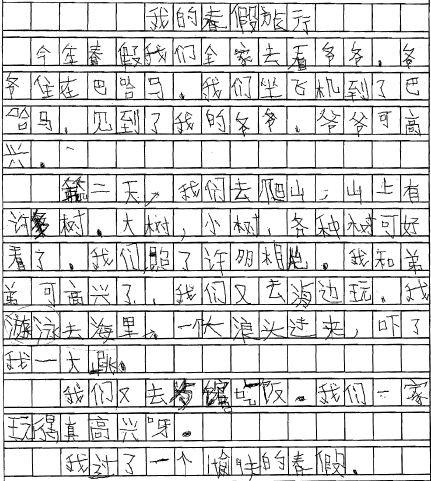 我的春假旅行
今年春假我们全家去看爷爷。爷
爷住在巴哈马。我们坐飞机到了巴
哈马。见到了我的爷爷。爷爷可高
兴。
第二天，我们去爬山，山上有
许多树。大树，小树，各种树可好
看了。我们跑了许多相。我和弟
弟可高兴了，我们又去海边玩。我
游泳去海里。一个大浪头过来，吓了
我一大跳。
我们又去馆吃饭。我们一家
玩得真高兴呀。
我过了一个愉快的春假。